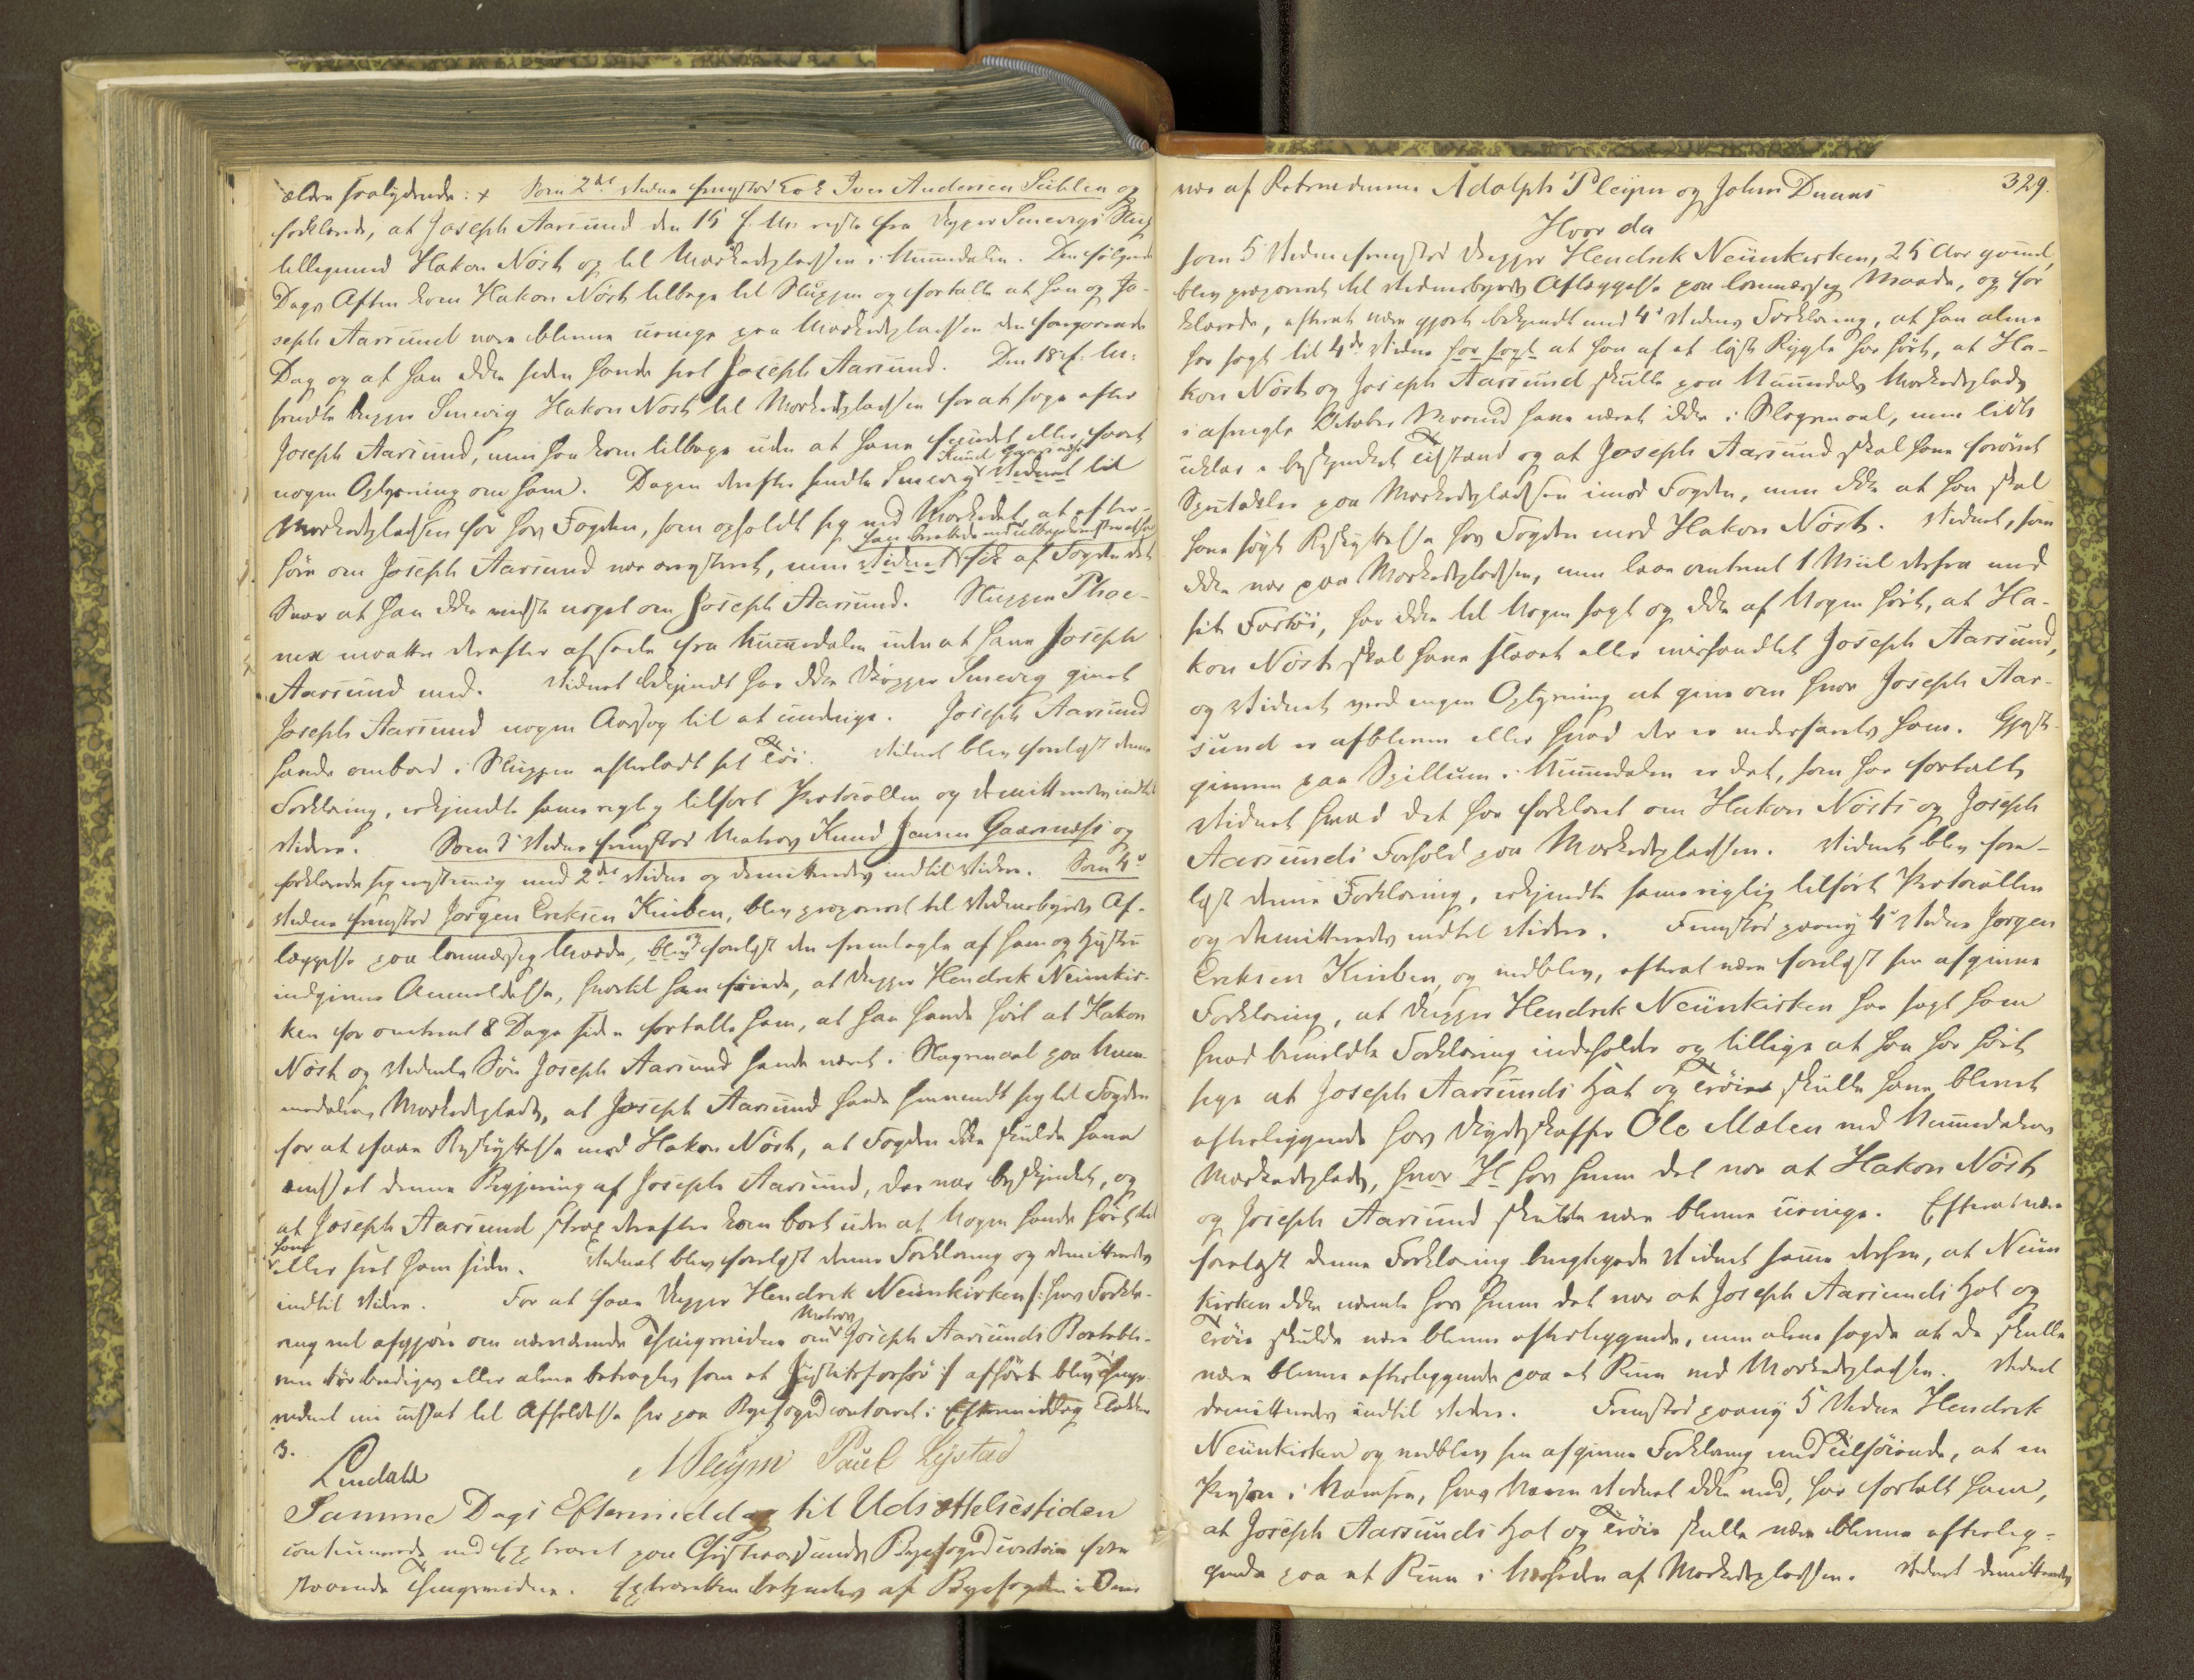 ældre saalydende: x Som 2det Vidne fremstod Lods Iver Andersen Suhlen og
forklarede, at Joseph Aarsund den 15 f. M. reiste fra Skipper Smevigs Slup
tilligemed Hakon Nøst og til Markedspladsen i Numedalen. Den følgende
Dags Aften kom Hakon Nøst tilbage til Sluppen og fortalte at han og Jo-
seph Aarsund vare blevne uenige paa Markedspladsen den foregaaende
Dag og at han ikke siden havde seet Joseph Aarsund. Den 18 f. M.
sendte Skipper Smevig Hakon Nøst til Markedspladsen for at søge efter
Joseph Aarsund, men han kom tilbage uden at have fundet eller faaet
nogen Oplysning om ham. Dagen derefter sendte Smevig Knud Gaarnæss Vidnet til
Markedspladsen for hos Fogden, som opholdt sig ved Markedet, at efter-
høre om Joseph Aarsund var arresteret, men Vidnet fik af Fogden det
Svar at han ikke vidste noget om Joseph Aarsund. Sluppen Phoe-
nix maatte derefter afseile fra Numedalen uden at have Joseph
Aarsund med. Vidnet bekjendt har ikke Skipper Smevig givet
Joseph Aarsund nogen Aarsag til at undvige. Joseph Aarsund
havde ombord i Sluppen efterladt sit Tøi. Vidnet blev forelæst denne
Forklaring, erkjendte samme rigtig tilført Protocollen og demitteredes indtil
videre. Som 3 Vidne fremstod Matros Knud Jensen Gaarnæss og
forklarede sig enstemmig med 2det Vidne og demitteredes indtil videre. Som 4de
Vidne fremstod Jørgen Eriksen Kinben, blev præpareret til Vidnesbyrds Af-
læggelse paa lovmæssig Maade, blev forelæst den fremlagte af ham og Hustru
indgivne Anmeldelse, hvortil han føiede, at Skipper Hendrik Neünkir-
ken for omtrent 8 Dage siden fortalte ham, at han havde hørt at Hakon
Nøst og Vidnets Søn Joseph Aarsund havde været i Slagsmaal paa Num-
medalens Markedsplads, at Joseph Aarsund havde henvendt sig til Fogden
for at faae Beskyttelse mod Hakon Nøst, at Fogden ikke skulde have
ændset denne Begjering af Joseph Aarsund, der var beskjenket, og
at Joseph Aarsund strax derefter kom bort uden at Nogen havde hørt til
ham eller seet ham siden. Vidnet blev forelæst denne Forklaring og demitteredes
indtil videre. For at faae Skipper Hendrik Neünkirken /: hvis Forkla-
ring vil afgjøre om nærværende Thingsvidne om Matros Joseph Aarsunds Bortebli-
ven bør beediges eller alene betragtes som et Justitsforhør :/ afhørt blev Things-
vidnet nu udsat til Afholdelse her paa Byefogedcontoiret i Eftermiddag Klokken
3.
Lindahl A Pleym Paul Lystad
Samme Dags Eftermiddag til Udsættelsestiden
continuerede ved Extraret paa Christiansunds Byefogedcontoir fore-
staaende Thingsvidne. Extraretten betjentes af Byefogden i Over
329.
vær af Retsmændene Adolph Pleym og Johm Duuns
Hvor da
som 5 Vidne fremstod Skipper Hendrik Neünkirken, 25 Aar gammel,
blev præpareret til Vidnesbyrds Aflæggelse paa lovmæssig Maade, og for-
klarede, efterat være gjort bekjendt med 4de Vidnes Forklaring, at han alene
har sagt til 4de Vidne har sagt at han af et løst Rygte har hørt, at Ha-
kon Nøst og Joseph Aarsund skulle paa Numedals Markedsplads
i afvigte October Maaned have været ikke i Slagsmaal, men lidt
uklar i beskjenket Tilstand og at Joseph Aarsund skal have forøvet
Spetakler paa Markedspladsen imod Fogden, men ikke at han skal
have søgt Beskyttelse hos Fogden mod Hakon Nøst. Vidnet, som
ikke var paa Markedspladsen, men laae omtrent 1 Miil derfra med
sit Fartøi, har ikke til Nogen sagt og ikke af Nogen hørt, at Ha-
kon Nøst skal have slaaet eller mishandlet Joseph Aarsund,
og Vidnet veed ingen Oplysning at give om hvor Joseph Aar-
sund er afbleven eller hvad der er vederfaret ham. Gjest-
giveren paa Spillum i Numedalen er det, som har fortalt
Vidnet hvad det har forklaret om Hakon Nøsts og Joseph
Aarsunds Forhold paa Markedspladsen. Vidnet blev fore-
læst denne Forklaring, erkjendte samme rigtig tilført Protocollen
og demitteredes indtil videre. Fremstod paany 4de Vidne Jørgen
Eriksen Kinben, og vedblev, efterat være forelæst sin afgivne
Forklaring, at Skipper Hendrik Neünkirken har sagt ham
hvad bemeldte Forklaring indeholder og tillige at han har hørt
sige at Joseph Aarsunds Hat og Trøie skulle have blevet
efterliggende hos Skydsskaffer Ole Mælen ved Numedalens
Markedsplads, hvor H hos hvem det var at Hakon Nøst
og Joseph Aarsund skulde være blevne uenige. Efterat være
forelæst denne Forklaring berigtigede Vidnet samme derhen, at Neün
kirken ikke nævnte hos hvem det var at Joseph Aarsunds Hat og
Trøie skulde være blevne efterliggende, men alene sagde at de skulle
være blevne efterliggende paa et Rum ved Markedspladsen. Vidnet
demitteredes indtil videre. Fremstod paany 5 Vidne Hendrik
Neünkirken og vedblev sin afgivne Forklaring med Tilføiende, at en
Person i Namsen, hvis Navn Vidnet ikke veed, har fortalt ham,
at Joseph Aarsunds Hat og Trøie skulle være blevne efterlig-
gende paa et Rum i Nærheden af Markedspladsen. Vidnet demitteredes